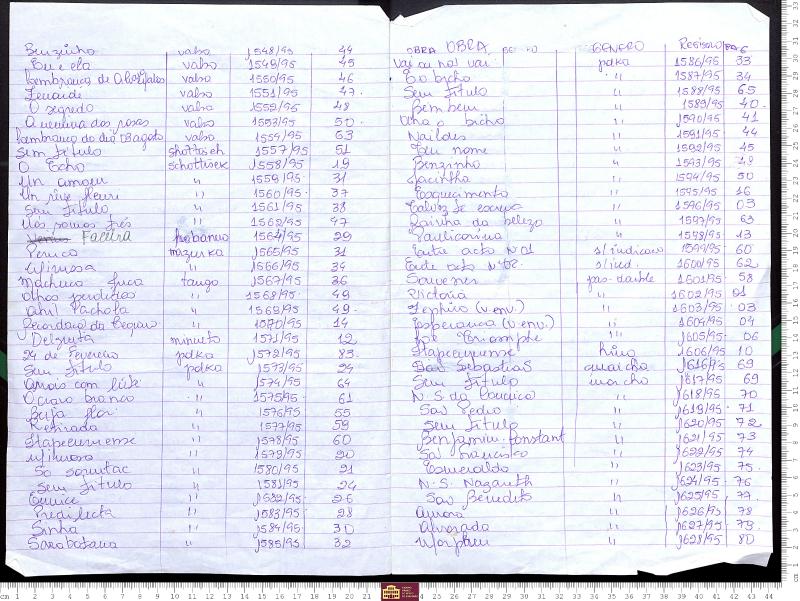 Benzinho valsa 1548/95 44
Eu e ela valsa 1549/95 45
Lembrança de valsa 1550/95 46
Zenaide valsa 1551/95 47
O segredo valsa 1552/95 48
A menina das rosas valsa 1553/95 50
Lembrança do dia 03 agosto valsa 1554/95 63
Sem titulo shottisch 1557/95 51
O Echo schottisck 1558/95 19
Un amour " 1559/95 31
Un rêve fleuri " 1560/95 37
Sem Titulo " 1561/95 38
Nós somos três " 1562/95 47
Faceira 1564/95 29
Peruca mazurka 1565/95 31
Mimosa " 1566/95 34
Machuca tango 1567/95 36
Olhos perdidos " 1568/95 49
Pachola " 1569/95 49
Recordação do " 1570/95 14
Delzuita minueto 1571/95 12
24 de Fevereiro polka 1572/95 83
Sem Titulo polka 1573/95 24
com " 1574/95 64
O cravo branco " 1575/95 61
Beija flor " 1576/95 55
Retirada " 1577/95 59
Itapecuruense " 1578/95 60
Mimosa " 1579/95 20
So " 1580/95 21
Sem Titulo " 1581/95 24
Eunice " 1582/95 26
Predilecta " 1583/95 28
Sinhá " 1584/95 30
Sarabatana " 1585/95 32
OBRA OBRA GENERO Registro PAG
Vai ou não vai polka 1586/95 33
Eo bicho " 1587/95 34
Sem Titulo " 1588/95 65
Bembem " 1589/95 40
Olha o bicho " 1590/95 41
Naildes " 1591/95 44
Teu nome " 1592/95 45
Benzinho " 1593/95 48
Jacintha " 1594/95 50
Esquecimento " 1595/95 16
Talvez te " 1596/95 03
Rainha da beleza " 1597/95 63
Paulicorina " 1598/95 13
Entre acto Nº 01 s/indicaco 1599/95 60
Ente acto Nº 02 s/ind. 1600/95 62
Souvenir pas-double 1601/95 58
Victoria " 1602/95 01
Zephiro (v env.) " 1603/95 03
Esperança (v env.) " 1604/95 04
" 1605/95 06
Itapecuruense hino 1606/95 10
São Sebastião marcha 1616/95 69
Sem Titulo marcha 1617/95 69
N. S. da " 1618/95 70
São Pedro " 1619/95 71
Sem Titulo " 1620/95 72
Benjamin Constant " 1621/95 73
São Francisco " 1622/95 74
Esmeralda " 1623/95 75
N. S. Nazareth " 1624/95 76
São Benedito " 1625/95 77
Aurora " 1626/95 78
Alvorada " 1627/95 79
Morpheu " 1628/95 80